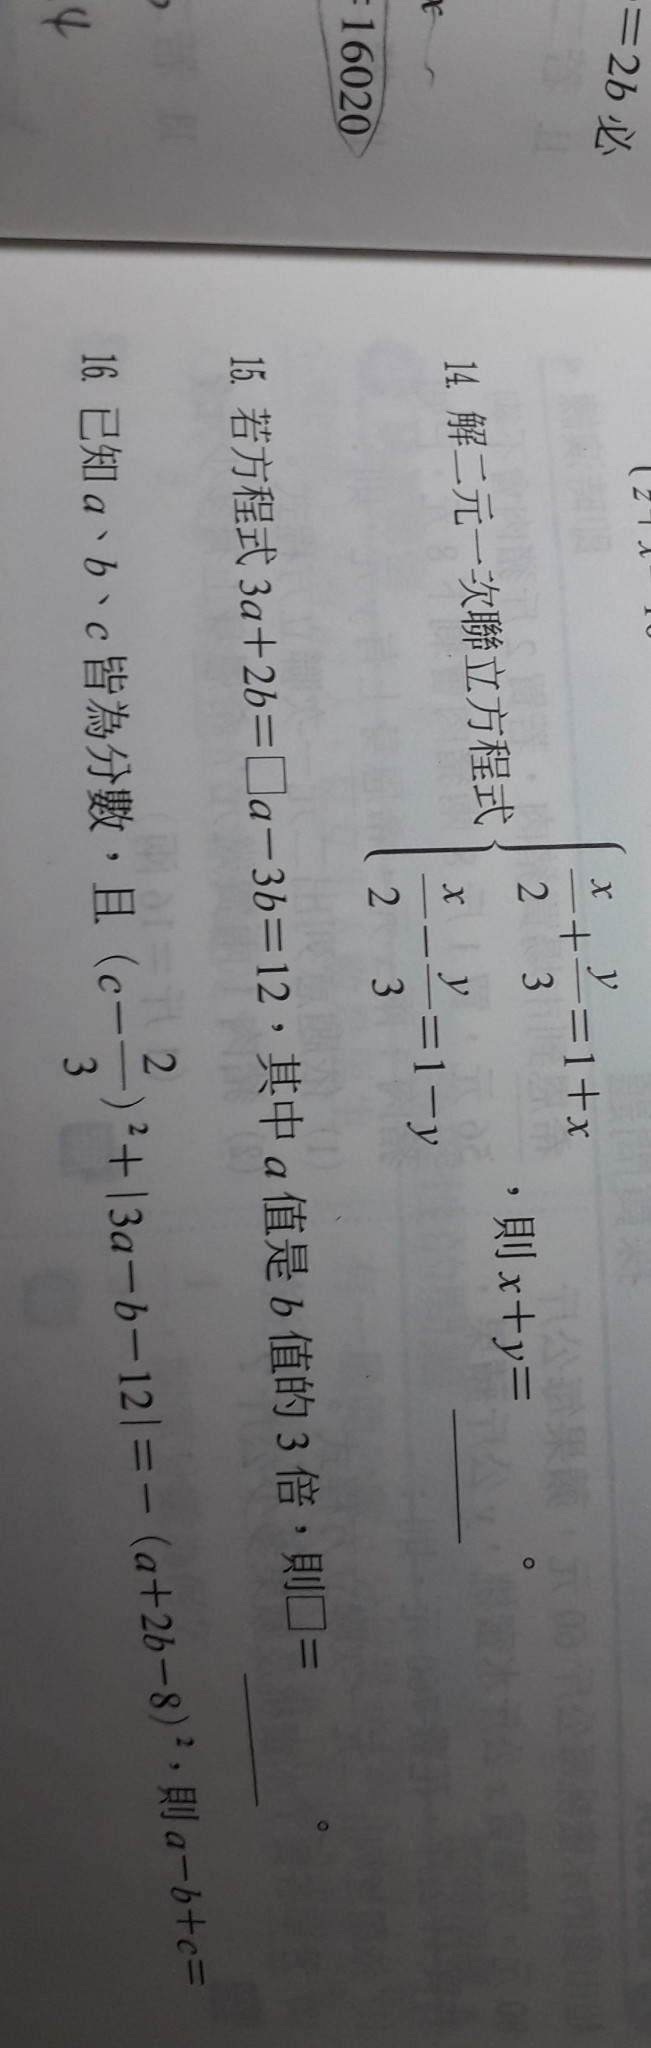 =2b 必
x
=16020
4
14. 解二元一次聯立方程式 { x/2 + y/3 = 1 + x
x/2 − y/3 = 1 − y ，則 x + y = ______ 。
15. 若方程式 3a + 2b = □a − 3b = 12，其中 a 值是 b 值的 3 倍，則□ = ______ 。
16. 已知 a、b、c 皆為分數，且 (c − 2/3)² + |3a − b − 12| = − (a + 2b − 8)²，則 a − b + c =